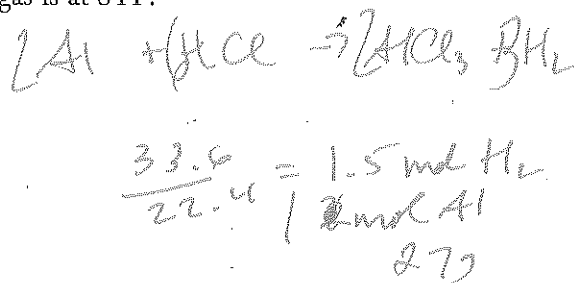 gas is at STP.
2Al + 6HCl → 2AlCl3 3H2
33.6
22.4 = 1.5 mol H2
1 mol Al
27g